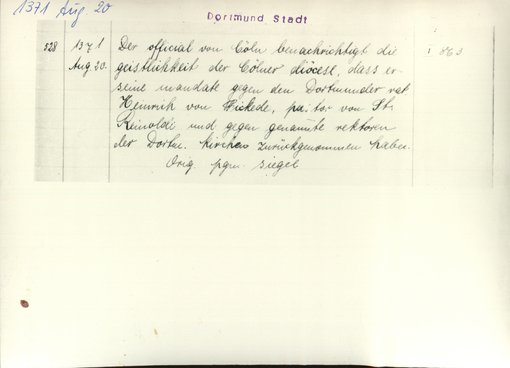 1371 Aug. 20
Dortmund Stadt
528 1371 Der official von Cöln benachrichtigt die : 863
Aug. 20. geistlichkeit der Cölner diöcese, dass er
seine mandate gegen den Dortmunder rat
Heinrich von Wickede, pastor von St.
Reinoldi und gegen genannte rektoren
der Dortm. kirchen zurückgenommen habe.
Orig. pgm. siegel